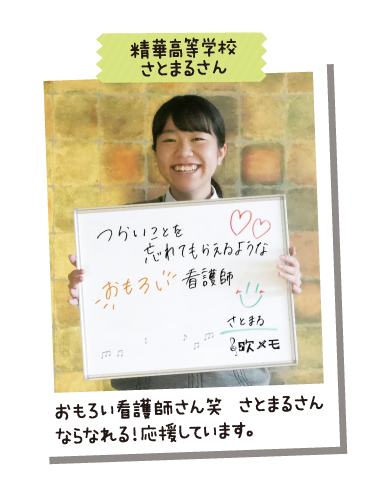 精華高等学校
さとまるさん
つらいことを
忘れてもらえるような
おもろい看護師
さとまる
吹メモ
おもろい看護師さん笑 さとまるさん
ならなれる！応援しています。